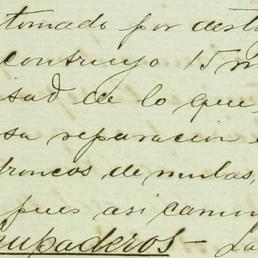 tomado por dest
contruyo 15 m
sad de lo que
sa reparacion
troncos de mulas,
pues asi camin
upaderos - La